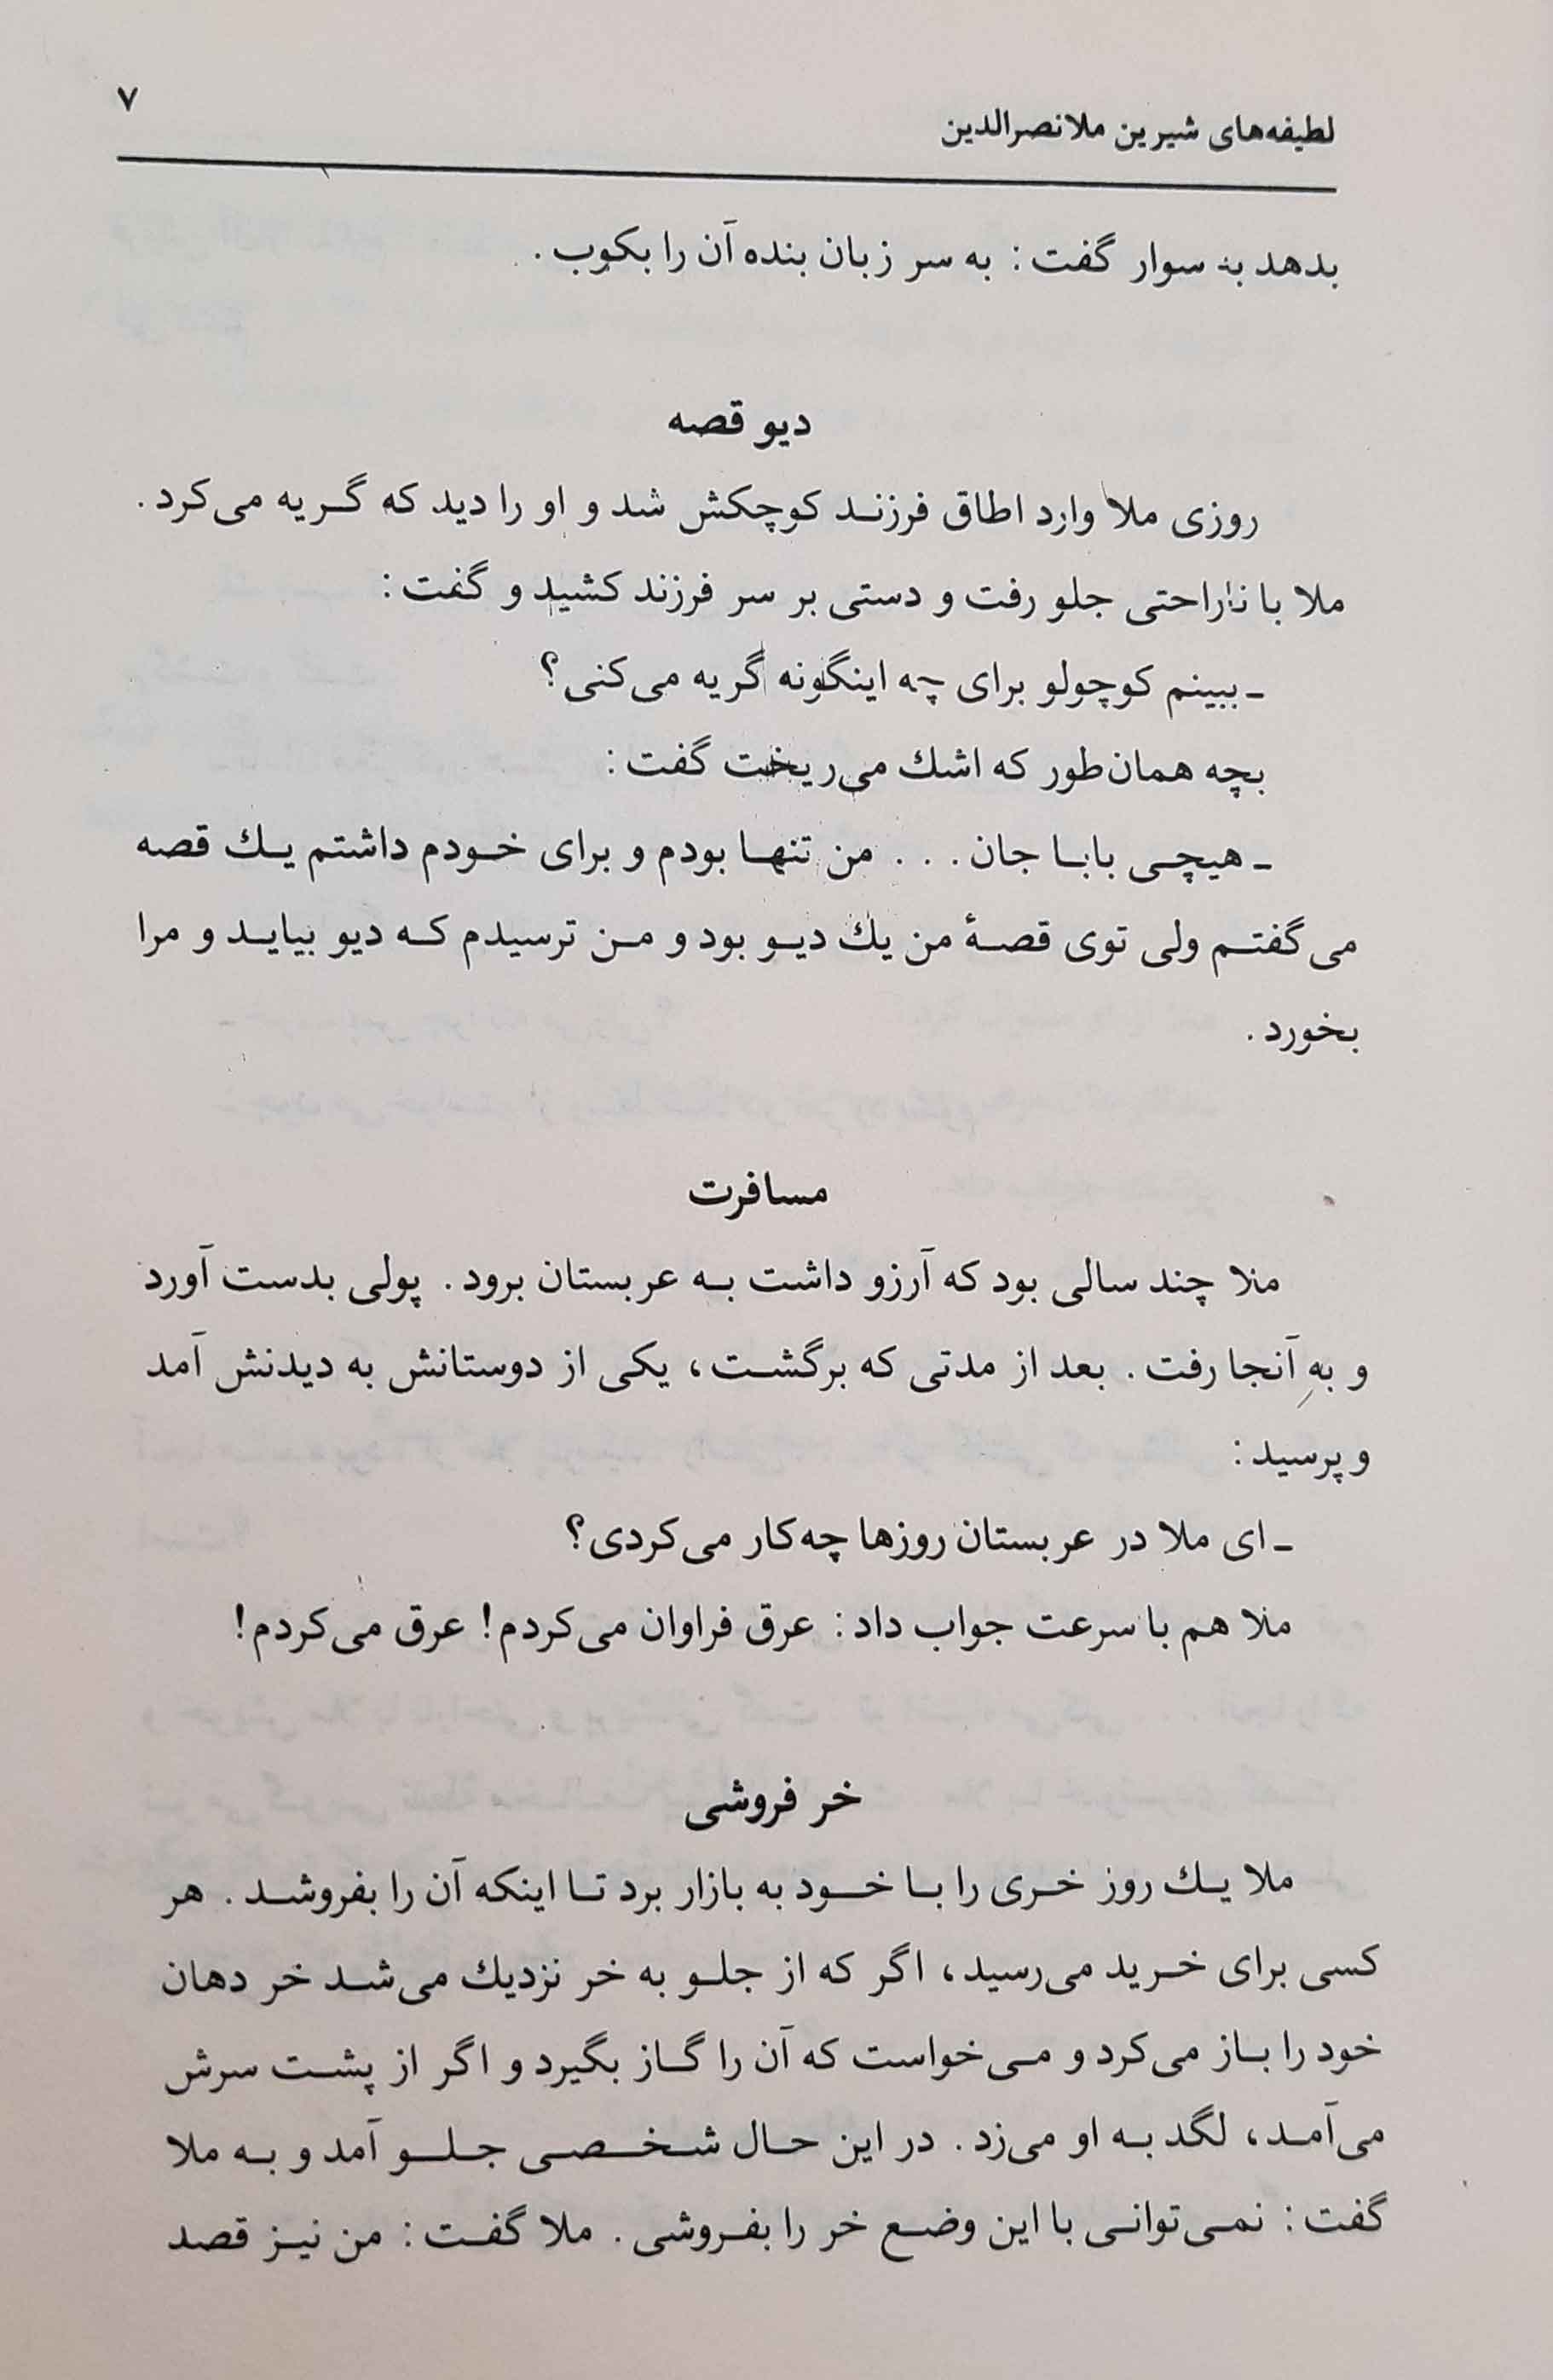 ۷
لطیفه‌های شیرین ملانصرالدین
بدهد به سوار گفت: به سر زبان بنده آن را بکوب.
دیو قصه
روزی ملا وارد اطاق فرزند کوچکش شد و او را دید که گریه می‌کرد.
ملا با ناراحتی جلو رفت و دستی بر سر فرزند کشید و گفت:
ـ ببینم کوچولو برای چه اینگونه گریه می‌کنی؟
بچه همان‌طور که اشك می‌ریخت گفت:
ـ هیچی بابا جان... من تنها بودم و برای خودم داشتم یك قصه
می‌گفتم ولی توی قصهٔ من یك دیو بود و من ترسیدم که دیو بیاید و مرا
بخورد.
مسافرت
ملا چند سالی بود که آرزو داشت به عربستان برود. پولی بدست آورد
و به آنجا رفت. بعد از مدتی که برگشت، یکی از دوستانش به دیدنش آمد
و پرسید:
ـ ای ملا در عربستان روزها چه‌کار می‌کردی؟
ملا هم با سرعت جواب داد: عرق فراوان می‌کردم! عرق می‌کردم!
خر فروشی
ملا یك روز خری را با خود به بازار برد تا اینکه آن را بفروشد. هر
کسی برای خرید می‌رسید، اگر که از جلو به خر نزدیك می‌شد خر دهان
خود را باز می‌کرد و می‌خواست که آن را گاز بگیرد و اگر از پشت سرش
می‌آمد، لگد به او می‌زد. در این حال شخصی جلو آمد و به ملا
گفت: نمی‌توانی با این وضع خر را بفروشی. ملا گفت: من نیز قصد